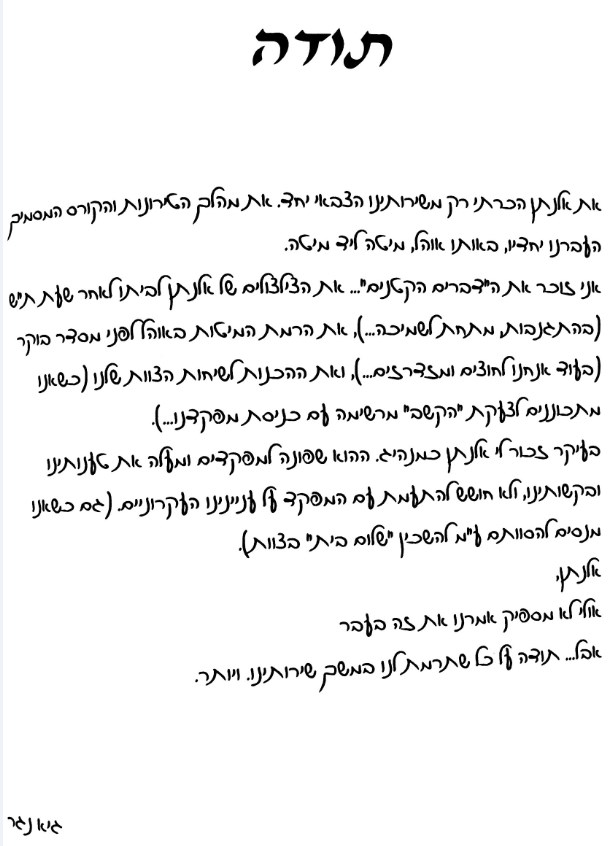 תודה
את אלנתן הכרתי רק משירותינו הצבאי יחד. את מהלך הטירונות והקורס המסמיך
העברנו יחדיו, באותו אוהל, מיטה ליד מיטה.
אני זוכר את ה"דברים הקטנים"... את הצילצולים של אלנתן לביתו לאחר שעת ת"ש
(בהתגנבות, מתחת לשמיכה...), את הרמת המיטות באוהל לפני מסדר בוקר
(בעוד אנחנו לחוצים ומזדרזים...), ואת ההכנות לשיחות הצוות שלנו (כשאנו
מתכוננים לצעקת "הקשב" מרשימה עם כניסת מפקדנו...).
בעיקר זכור לי אלנתן כמנהיג. ההוא שפונה למפקדים ומעלה את טענותינו
ובקשותינו, ולא חושש להתעמת עם המפקד על עניינינו העקרוניים. (גם כשאנו
מנסים להסוותם ע"מ להשכין "שלום בית" בצוות).
אלנתן,
אולי לא מספיק אמרנו את זה בעבר
אבל... תודה על כל שתרמת לנו במשך שירותינו. ויותר.
גיא נגר